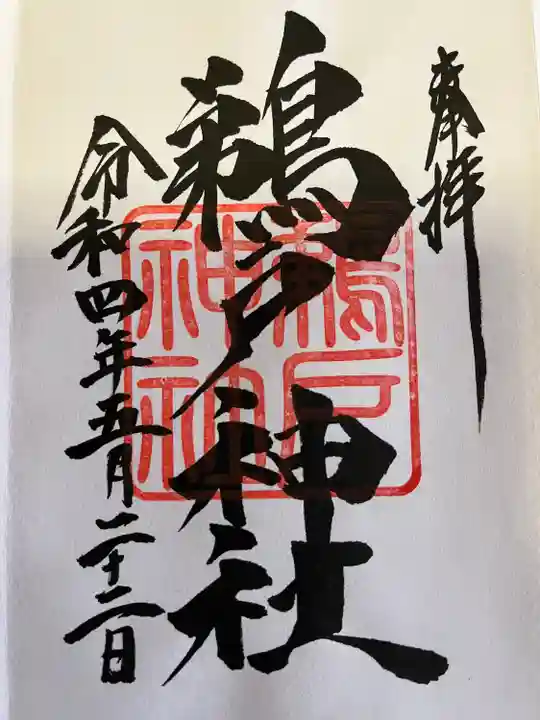 奉拝
鵜戸神社
鵜戸
神社
令和四年五月二十二日